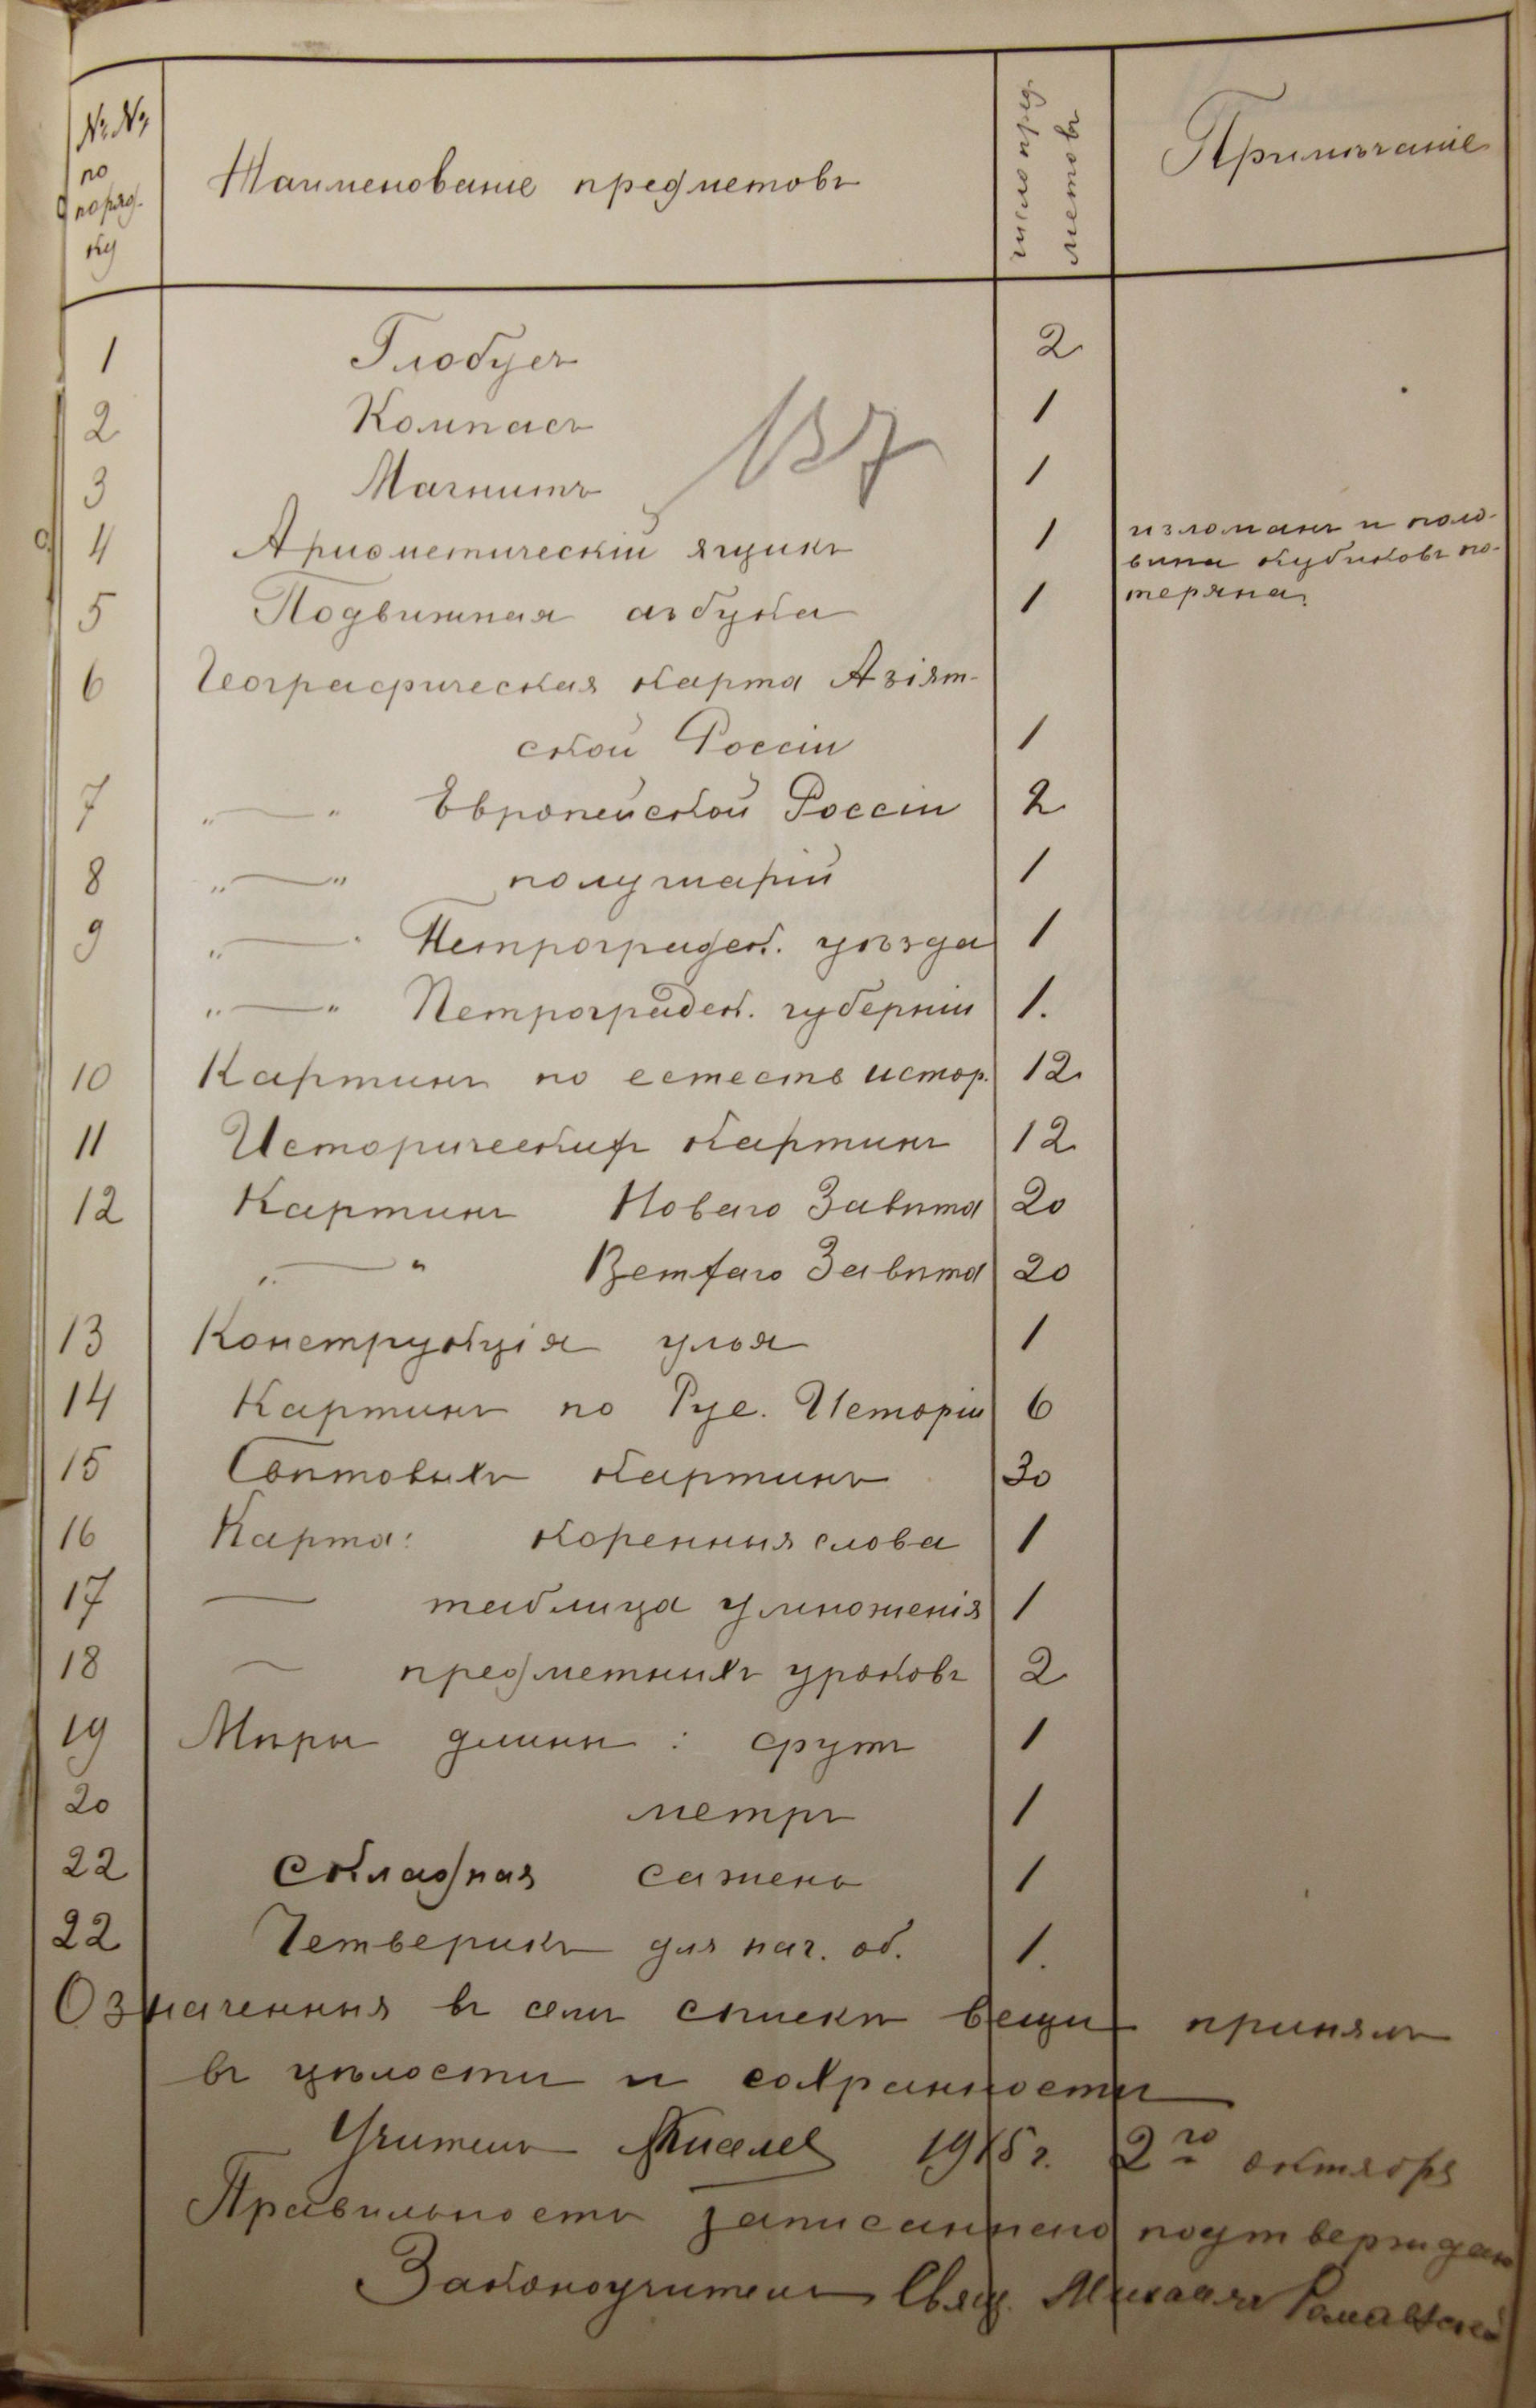 №№ по поряд- ку
Наименованіе предметовъ
число пред- метовъ
Примѣчаніе
1 Глобусъ 2
2 Компасъ 1
137
3 Магнитъ 1
4 Ариѳметическій ящикъ 1 изломанъ и поло-
вина кубиковъ по-
5 Подвижная азбука 1 теряна.
6 Географическая карта Азіят-
ской Россіи 1
7 „—" Европейской Россіи 2
8 „—" полушарій 1
9 „—" Петроградск. уѣзда 1
„—" Петроградск. губерніи 1.
10 Картинъ по естеств истор. 12
11 Историческихъ картинъ 12
12 Картинъ Новаго Завѣта 20
„—" Ветхаго Завѣта 20
13 Конструкція улья 1
14 Картинъ по Рус. Исторіи 6
15 Свѣтовыхъ картинъ 30
16 Карта: коренныя слова 1
17 — таблица умноженія 1
18 — предметныхъ уроковъ 2
19 Мѣры длины: футъ 1
20 метръ 1
22 Складная сажень 1
22 Четверикъ для нач. об. 1.
Означенныя въ семъ спискѣ вещи принялъ
въ цѣлости и сохранности
Учитель 1915 г. 2го октября
Правильность записаннаго подтверждаю
Законоучитель Свящ. Михаилъ